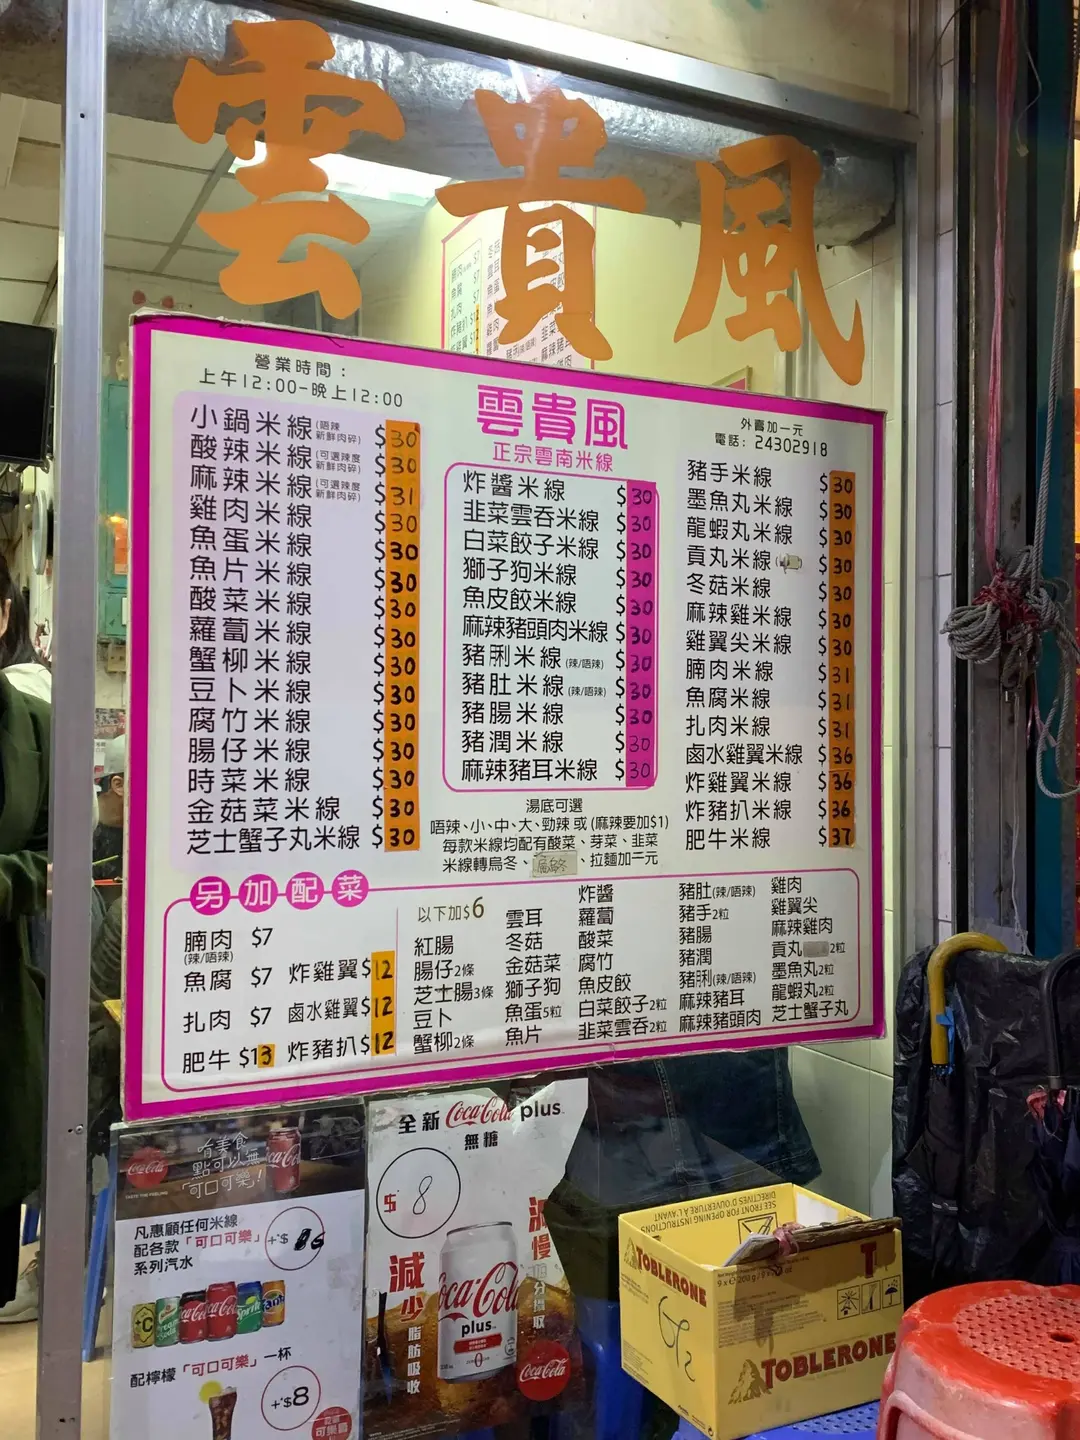 雲貴風
營業時間：
上午12:00-晚上12:00
小鍋米線(唔辣 新鮮肉碎) $30
酸辣米線(可選辣度 新鮮肉碎) $30
麻辣米線(可選辣度 新鮮肉碎) $31
雞肉米線 $30
魚蛋米線 $30
魚片米線 $30
酸菜米線 $30
蘿蔔米線 $30
蟹柳米線 $30
豆卜米線 $30
腐竹米線 $30
腸仔米線 $30
時菜米線 $30
金菇菜米線 $30
芝士蟹子丸米線 $30
雲貴風
正宗雲南米線
炸醬米線 $30
韭菜雲吞米線 $30
白菜餃子米線 $30
獅子狗米線 $30
魚皮餃米線 $30
麻辣豬頭肉米線 $30
豬脷米線(辣/唔辣) $30
豬肚米線(辣/唔辣) $30
豬腸米線 $30
豬潤米線 $30
麻辣豬耳米線 $30
湯底可選
唔辣、小、中、大、勁辣 或 (麻辣要加$1)
每款米線均配有酸菜、芽菜、韭菜
米線轉烏冬、、拉麵加一元
外賣加一元
電話: 24302918
豬手米線 $30
墨魚丸米線 $30
龍蝦丸米線 $30
貢丸米線 $30
冬菇米線 $30
麻辣雞米線 $30
雞翼尖米線 $30
腩肉米線 $31
魚腐米線 $31
扎肉米線 $31
鹵水雞翼米線 $36
炸雞翼米線 $36
炸豬扒米線 $36
肥牛米線 $37
另加配菜
腩肉 $7
(辣/唔辣)
魚腐 $7
扎肉 $7
肥牛 $13
炸雞翼 $12
鹵水雞翼 $12
炸豬扒 $12
以下加$6
紅腸
腸仔2條
芝士腸3條
豆卜
蟹柳2條
雲耳
冬菇
金菇菜
獅子狗
魚蛋5粒
魚片
炸醬
蘿蔔
酸菜
腐竹
魚皮餃
白菜餃子2粒
韭菜雲吞2粒
豬肚(辣/唔辣)
豬手2粒
豬腸
豬潤
豬脷(辣/唔辣)
麻辣豬耳
麻辣豬頭肉
雞肉
雞翼尖
麻辣雞肉
貢丸 2粒
墨魚丸2粒
龍蝦丸2粒
芝士蟹子丸
Coca-Cola
TASTE THE FEELING
啃美食
點可以無
「可口可樂」!
凡惠顧任何米線
配各款「可口可樂」
系列汽水
+$
配檸檬「可口可樂」一杯
+$8
全新 Coca-Cola plus
無糖
$8
減少
脂肪吸收
減慢
Coca-Cola
plus
Coca-Cola
SEE FRONT FOR OPENING INSTRUCTIONS
DIRECTIVES D'OUVERTURE À L'AVANT
TOBLERONE
TOBLERONE